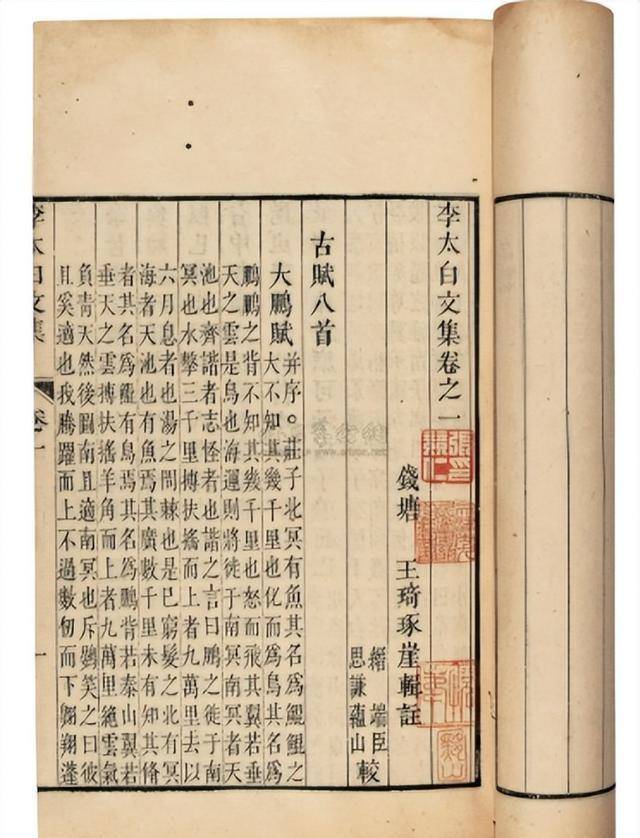 李太白文集卷之一
錢塘 王琦琢崖輯註
縉端臣
思謙蘊山 較
古賦八首
大鵬賦 并序。莊子北冥有魚其名爲鯤鯤之
大不知其幾千里也化而爲鳥其名爲
鵬鵬之背不知其幾千里也怒而飛其翼若垂
天之雲是鳥也海運則將徙于南冥南冥者天
池也齊諧者志怪者也諧之言曰鵬之徙于南
冥也水擊三千里摶扶搖而上者九萬里去以
六月息者也湯之問棘也是已窮髮之北有冥
海者天池也有魚焉其廣數千里未有知其脩
者其名爲鯤有鳥焉其名爲鵬背若泰山翼若
垂天之雲摶扶搖羊角而上者九萬里絕雲氣
負青天然後圖南且適南冥也斥鷃笑之曰彼
且奚適也我騰躍而上不過數仞而下翱翔蓬
李太白文集 卷一 一